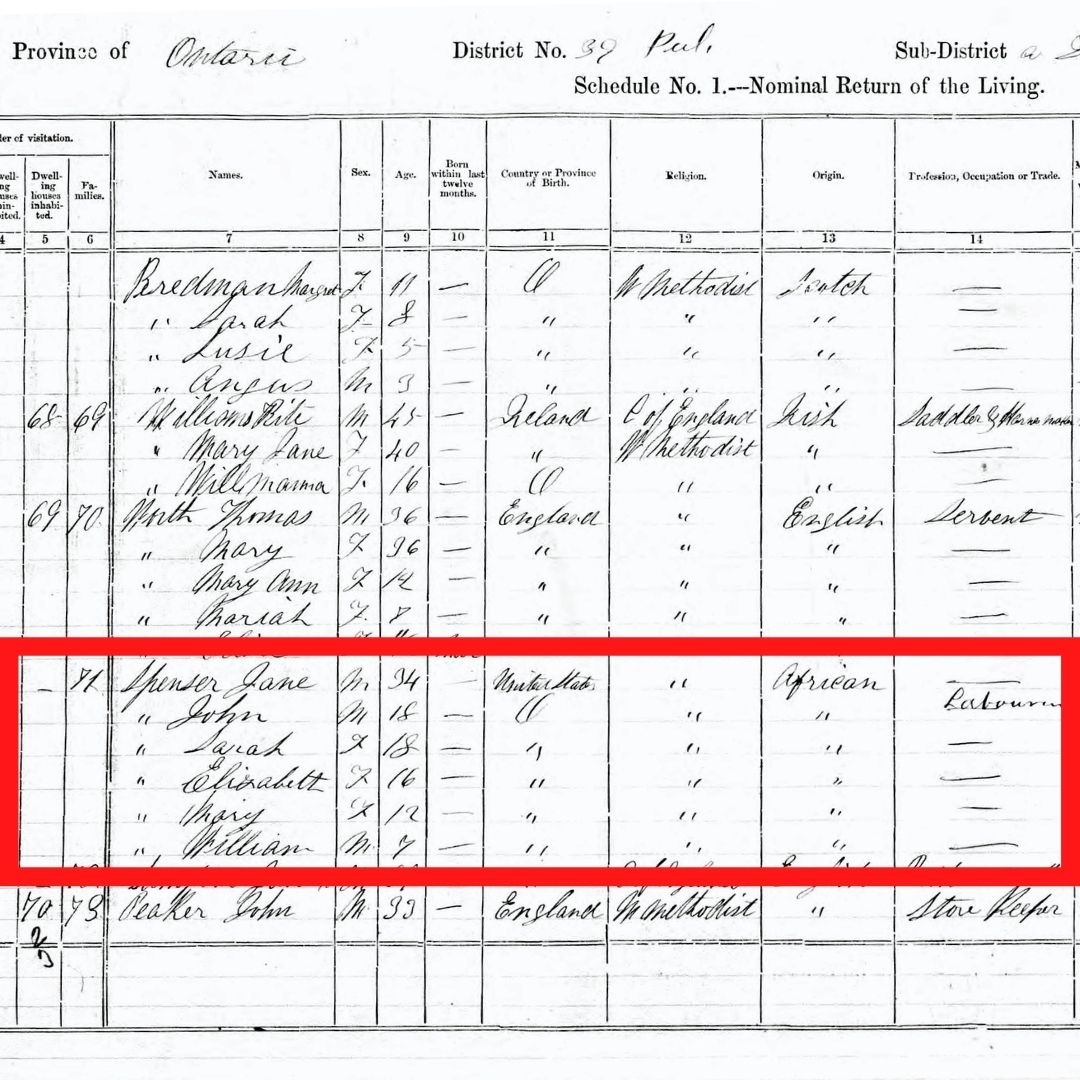 Province of Ontario District No. 39 Peel Sub-District a
Schedule No. 1.---Nominal Return of the Living.
der of visitation.
Dwell- ing houses inhabi- ted. Fa- milies. Names. Sex. Age. Born within last twelve months. Country or Province of Birth. Religion. Origin. Profession, Occupation or Trade.
4 5 6 7 8 9 10 11 12 13 14
Bredman Margret F 11 — O W Methodist Scotch —
" Sarah F 8 — " " " —
" Lusie F 5 — " " " —
" Angus M 3 — " " " —
68 69 Williams M 45 — Ireland C of England Irish Saddler &
" Mary Jane F 40 — " W Methodist " —
" F 16 — O " " —
69 70 North Thomas M 36 — England " English Servent
" Mary F 36 — " " " —
" Mary Ann F 12 — " " " —
" Mariah F 8 — " " " —
— 71 Spenser Jane M 34 United States " African —
" John M 18 — O " " Labourer
" Sarah F 18 — " " " —
" Elizabett F 16 — " " " —
" Mary F 12 — " " " —
" William M 7 — " " " —
70 73 Peaker John M 33 — England W Methodist " Store Keeper
2